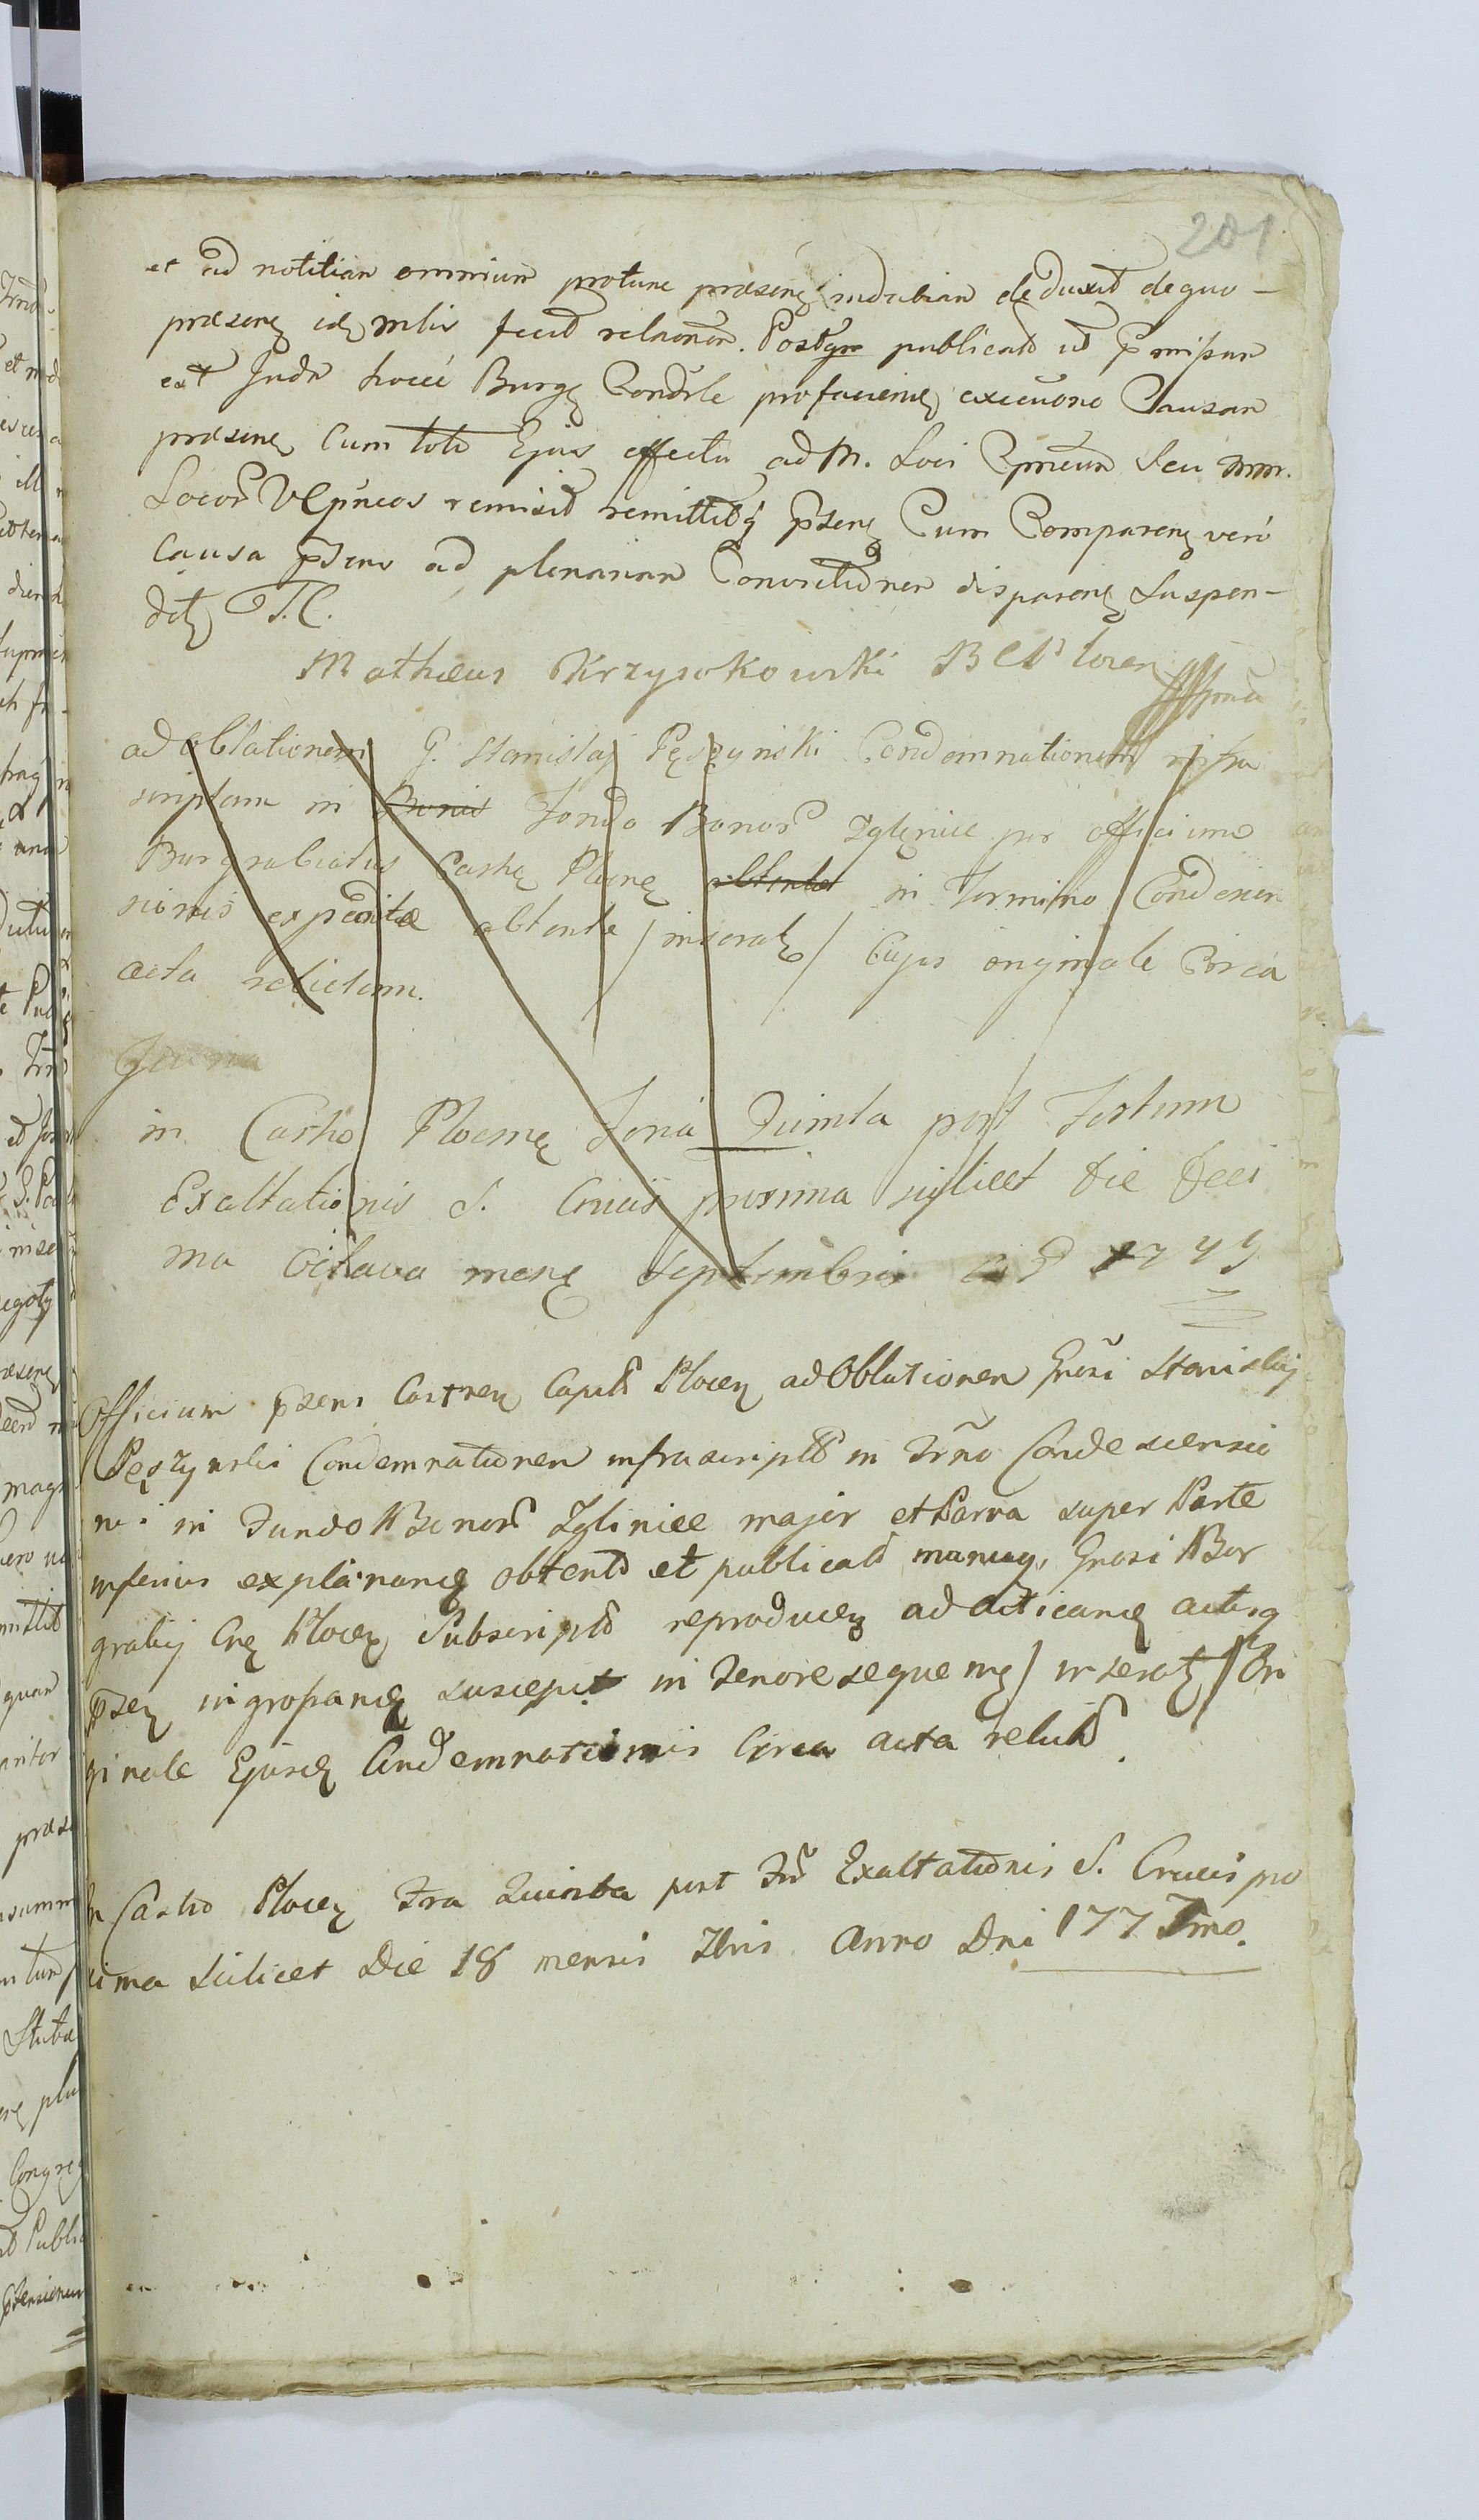 201
et ad notitian omnium protunc præsenę indubian deduxit dequo –
præsenę idę mlis fecit relaonem. Postqm publicatd ut pmissum
est Judm hocce Burgę Condle profacienę execuone Causan
præsenę Cum toto Ejus effectu ad M. Loci seu mm.
Locor remisit remittitq pstenę Cum Comparenę veri
Causa pstens ad plenarian disparenę Suspen-
ditę T.C.
Matheus Krzysokowski
ad oblationem G. Stanislaj Pęszynski Condemnationem infra
scriptam in Bonis Fondo Bonor Zglęnice per officium
Burgrabiatus Castrę Plocnę obtentae in Termino Condescen
sionis expedita obtente / inseratę / Cujus originale Circa
acta relictum.
in Castro Plocenę Feria Quinta post Festum
Exaltationis S. Crucis proxima scilicet die Deci
ma octava mensę Septembris
Officium pzens Castrenę Capitl Plocenę ad Oblationen Gnosi Stanislaj
Pęszynski Condemnationen infrascriptd in Trno Condescensio
nis in Fundo Bonor Zglinice major et Parva super Parte
inferius explananę obtentd et publicatd manuq, Gnosi Bur
grabij Crę Plocenę Subscriptd reproducenę ad acticanę actisq
pzenę ingrossanę suscepit in Tenore sequenę / inseratę / Ori
ginale Ejusdę Condemnationis Circa acta relictd.
In Castro Plocenę Fra Quinta post Fm Exaltationis S. Crucis pro
xima Scilicet Die 18 mensis 7bris Anno Dni 177 Imo.